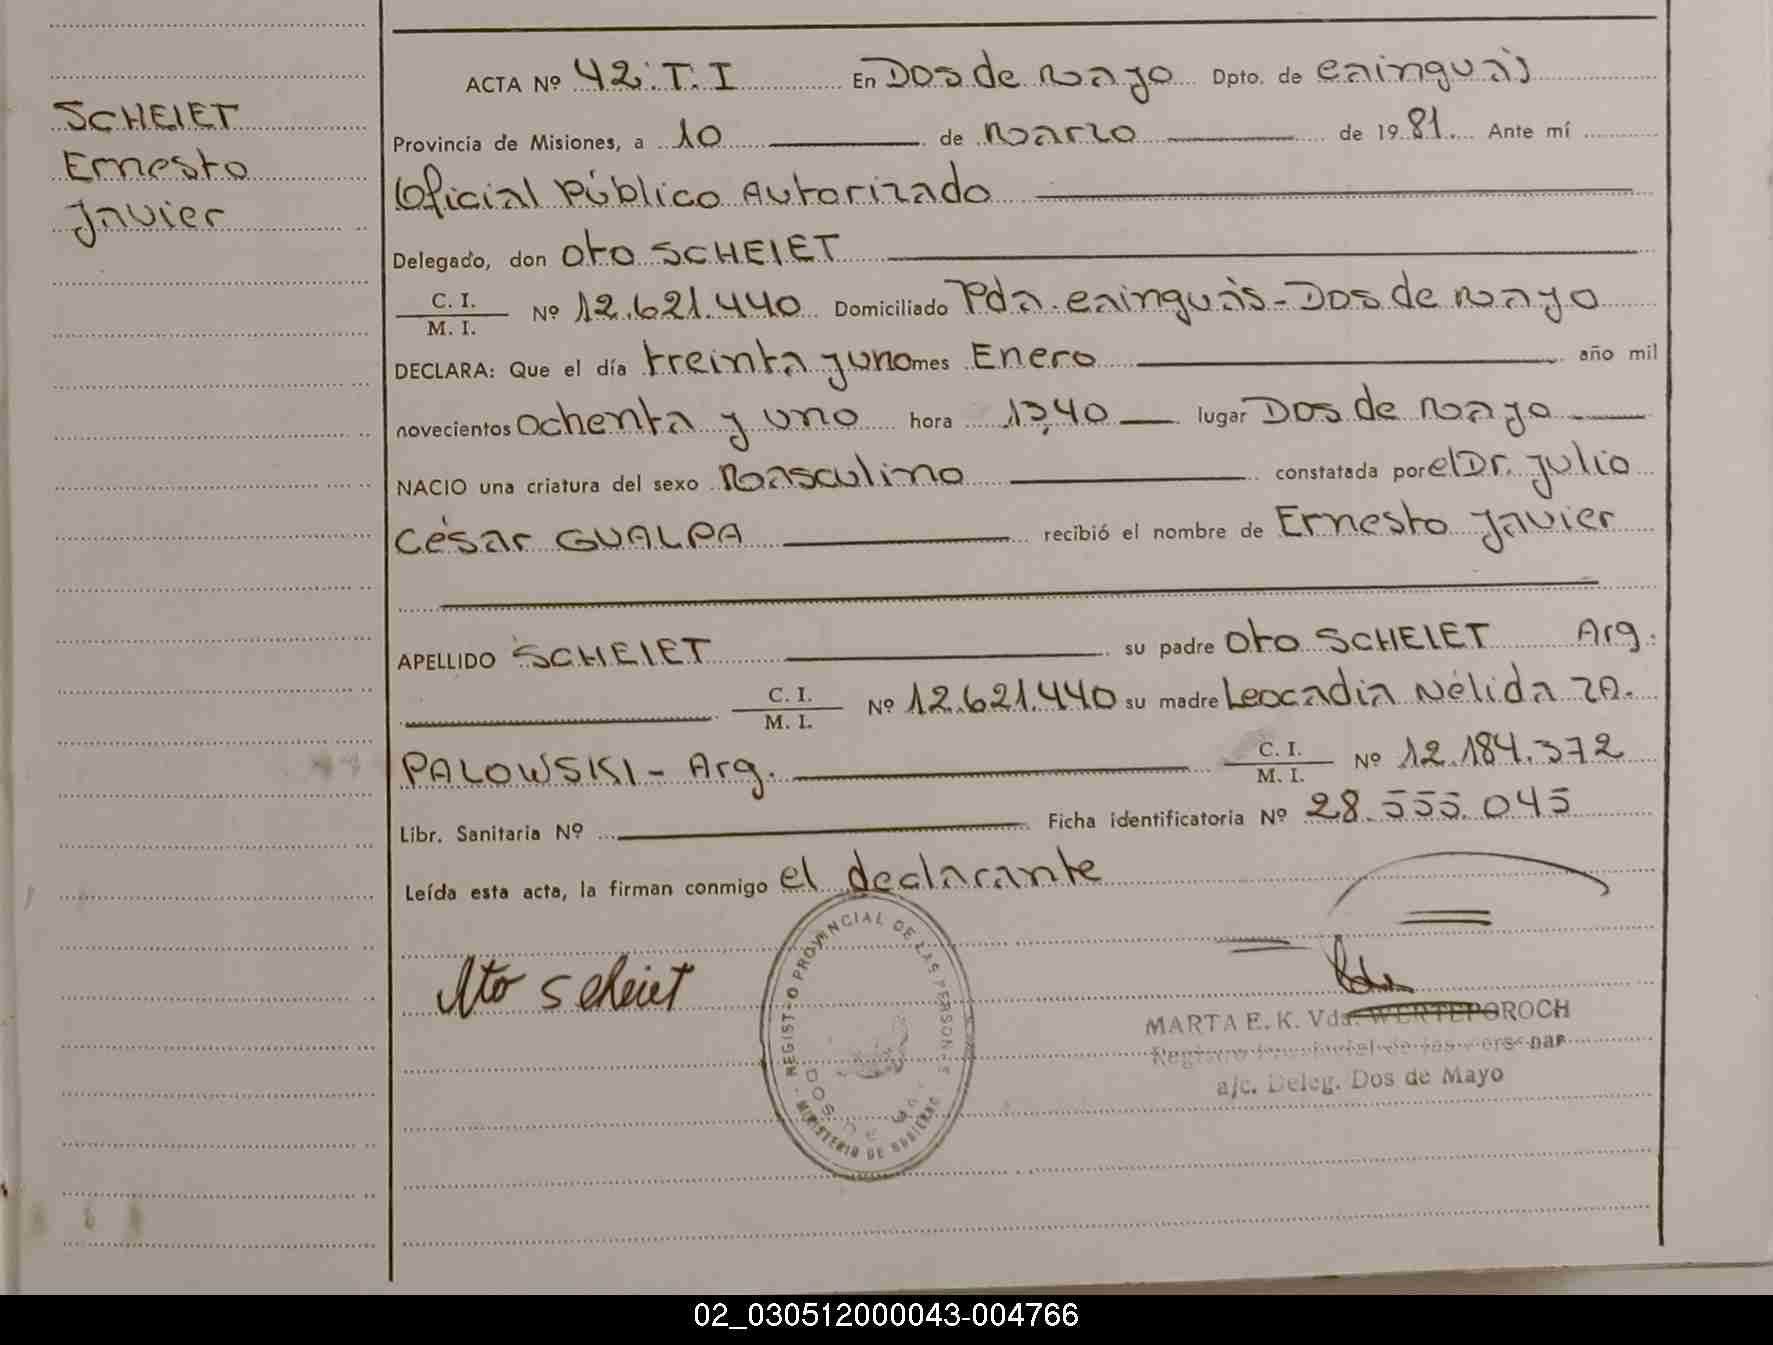 SCHEIET
Ernesto
Javier
ACTA Nº 42.T.I En Dos de Mayo Dpto. de Cainguás
Provincia de Misiones, a 10 de Marzo de 1981. Ante mí
Oficial Público Autorizado
Delegado, don Oto SCHEIET
C. I.
M. I. Nº 12.621.440 Domiciliado Pda. Cainguás - Dos de Mayo
DECLARA: Que el día treinta y uno mes Enero año mil
novecientos Ochenta y uno hora 13,40 lugar Dos de Mayo
NACIO una criatura del sexo Masculino constatada por el Dr. Julio
César GUALPA recibió el nombre de Ernesto Javier
APELLIDO SCHEIET su padre Oto SCHEIET Arg.
C. I.
M. I. Nº 12.621.440 su madre Leocadia Nélida ZA.
PALOWSKI - Arg. C. I.
M. I. Nº 12.184.372
Libr. Sanitaria Nº Ficha identificatoria Nº 28.555.045
Leída esta acta, la firman conmigo el declarante
Oto Scheiet
REGISTRO PROVINCIAL DE LAS PERSONAS
DOS DE MAYO
MINISTERIO DE GOBIERNO
MARTA E. K. Vda. WERTEPOROCH
Registro Provincial de las Personas
a/c. Deleg. Dos de Mayo
02_030512000043-004766